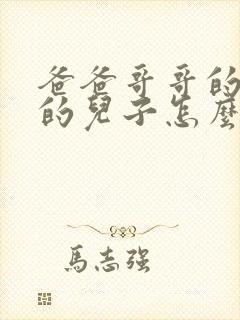 爸爸哥哥的
的兒子怎麼
馬志強